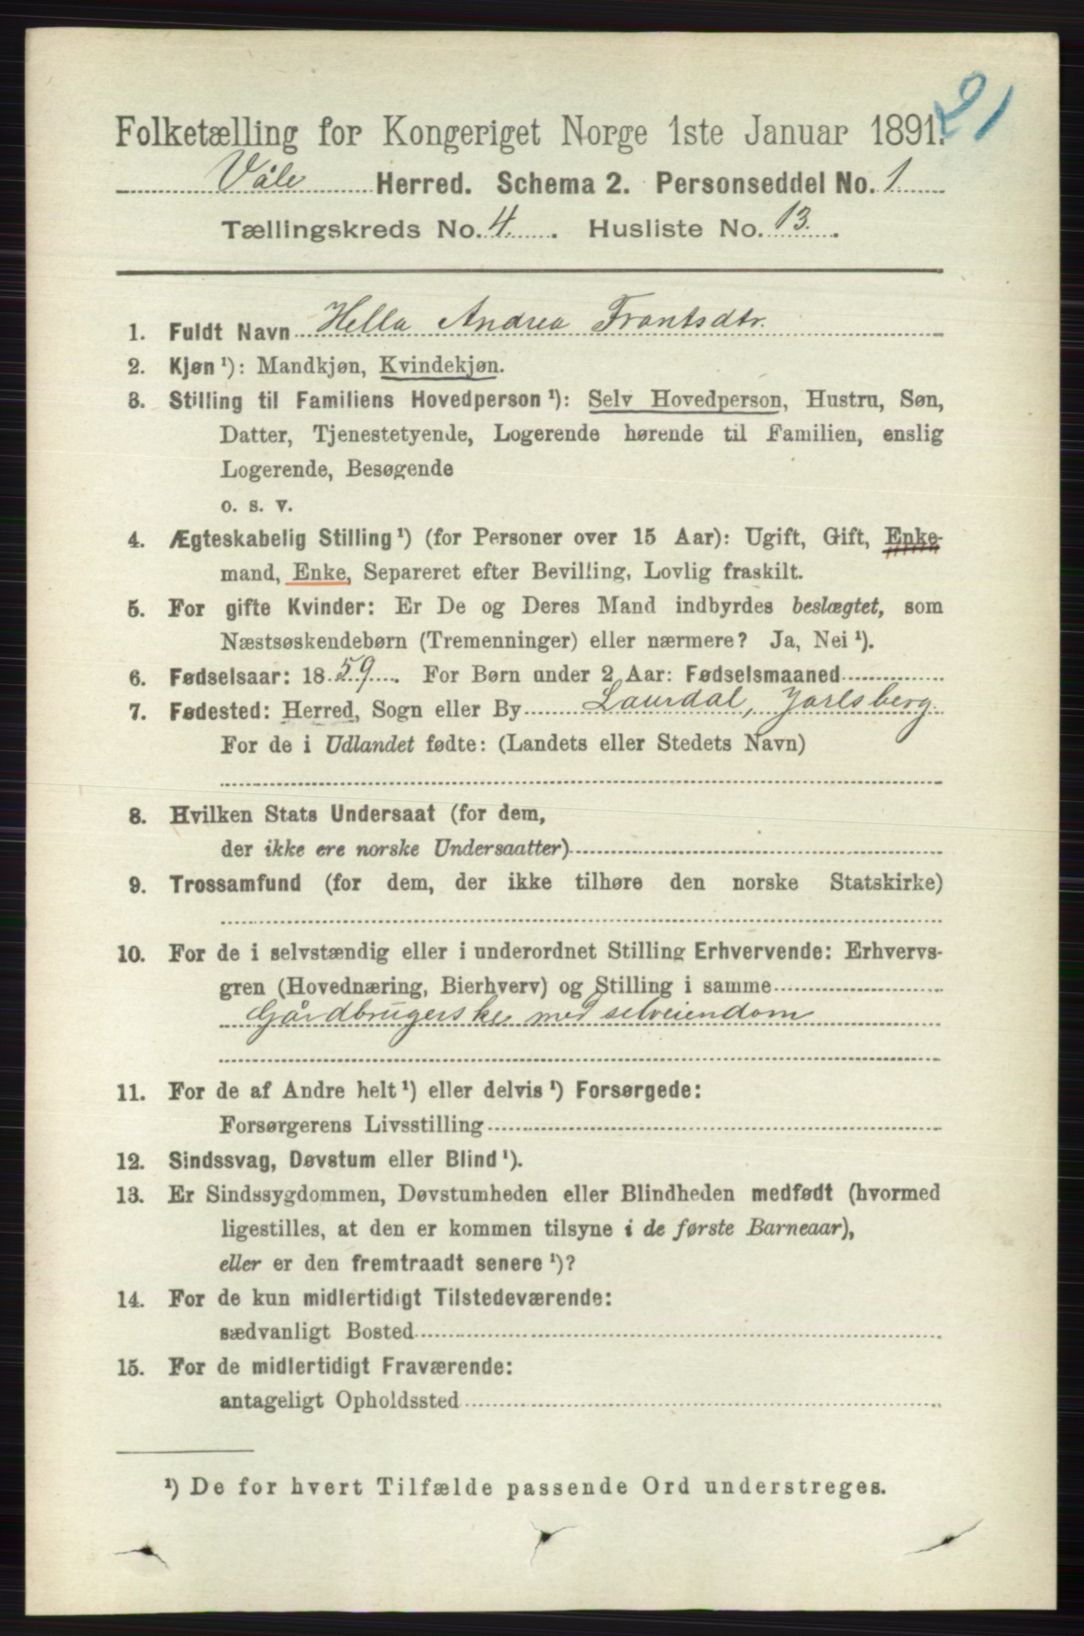 21
Folketælling for Kongeriget Norge 1ste Januar 1891.
Våle Herred. Schema 2. Personseddel No. 1
Tællingskreds No. 4. Husliste No. 13.
1. Fuldt Navn Hella Andrea Frantsdtr.
2. Kjøn ¹): Mandkjøn, Kvindekjøn.
3. Stilling til Familiens Hovedperson ¹): Selv Hovedperson, Hustru, Søn,
Datter, Tjenestetyende, Logerende hørende til Familien, enslig
Logerende, Besøgende
o. s. v.
4. Ægteskabelig Stilling ¹) (for Personer over 15 Aar): Ugift, Gift, Enke-
mand, Enke, Separeret efter Bevilling, Lovlig fraskilt.
5. For gifte Kvinder: Er De og Deres Mand indbyrdes beslægtet, som
Næstsøskendebørn (Tremenninger) eller nærmere? Ja, Nei ¹).
6. Fødselsaar: 1859. For Børn under 2 Aar: Fødselsmaaned
7. Fødested: Herred, Sogn eller By Laurdal, Jarlsberg.
For de i Udlandet fødte: (Landets eller Stedets Navn)
8. Hvilken Stats Undersaat (for dem,
der ikke ere norske Undersaatter)
9. Trossamfund (for dem, der ikke tilhøre den norske Statskirke)
10. For de i selvstændig eller i underordnet Stilling Erhvervende: Erhvervs-
gren (Hovednæring, Bierhverv) og Stilling i samme
Gårdbrugerske med selveiendom
11. For de af Andre helt ¹) eller delvis ¹) Forsørgede:
Forsørgerens Livsstilling
12. Sindssvag, Døvstum eller Blind ¹).
13. Er Sindssygdommen, Døvstumheden eller Blindheden medfødt (hvormed
ligestilles, at den er kommen tilsyne i de første Barneaar),
eller er den fremtraadt senere ¹)?
14. For de kun midlertidigt Tilstedeværende:
sædvanligt Bosted
15. For de midlertidigt Fraværende:
antageligt Opholdssted
¹) De for hvert Tilfælde passende Ord understreges.